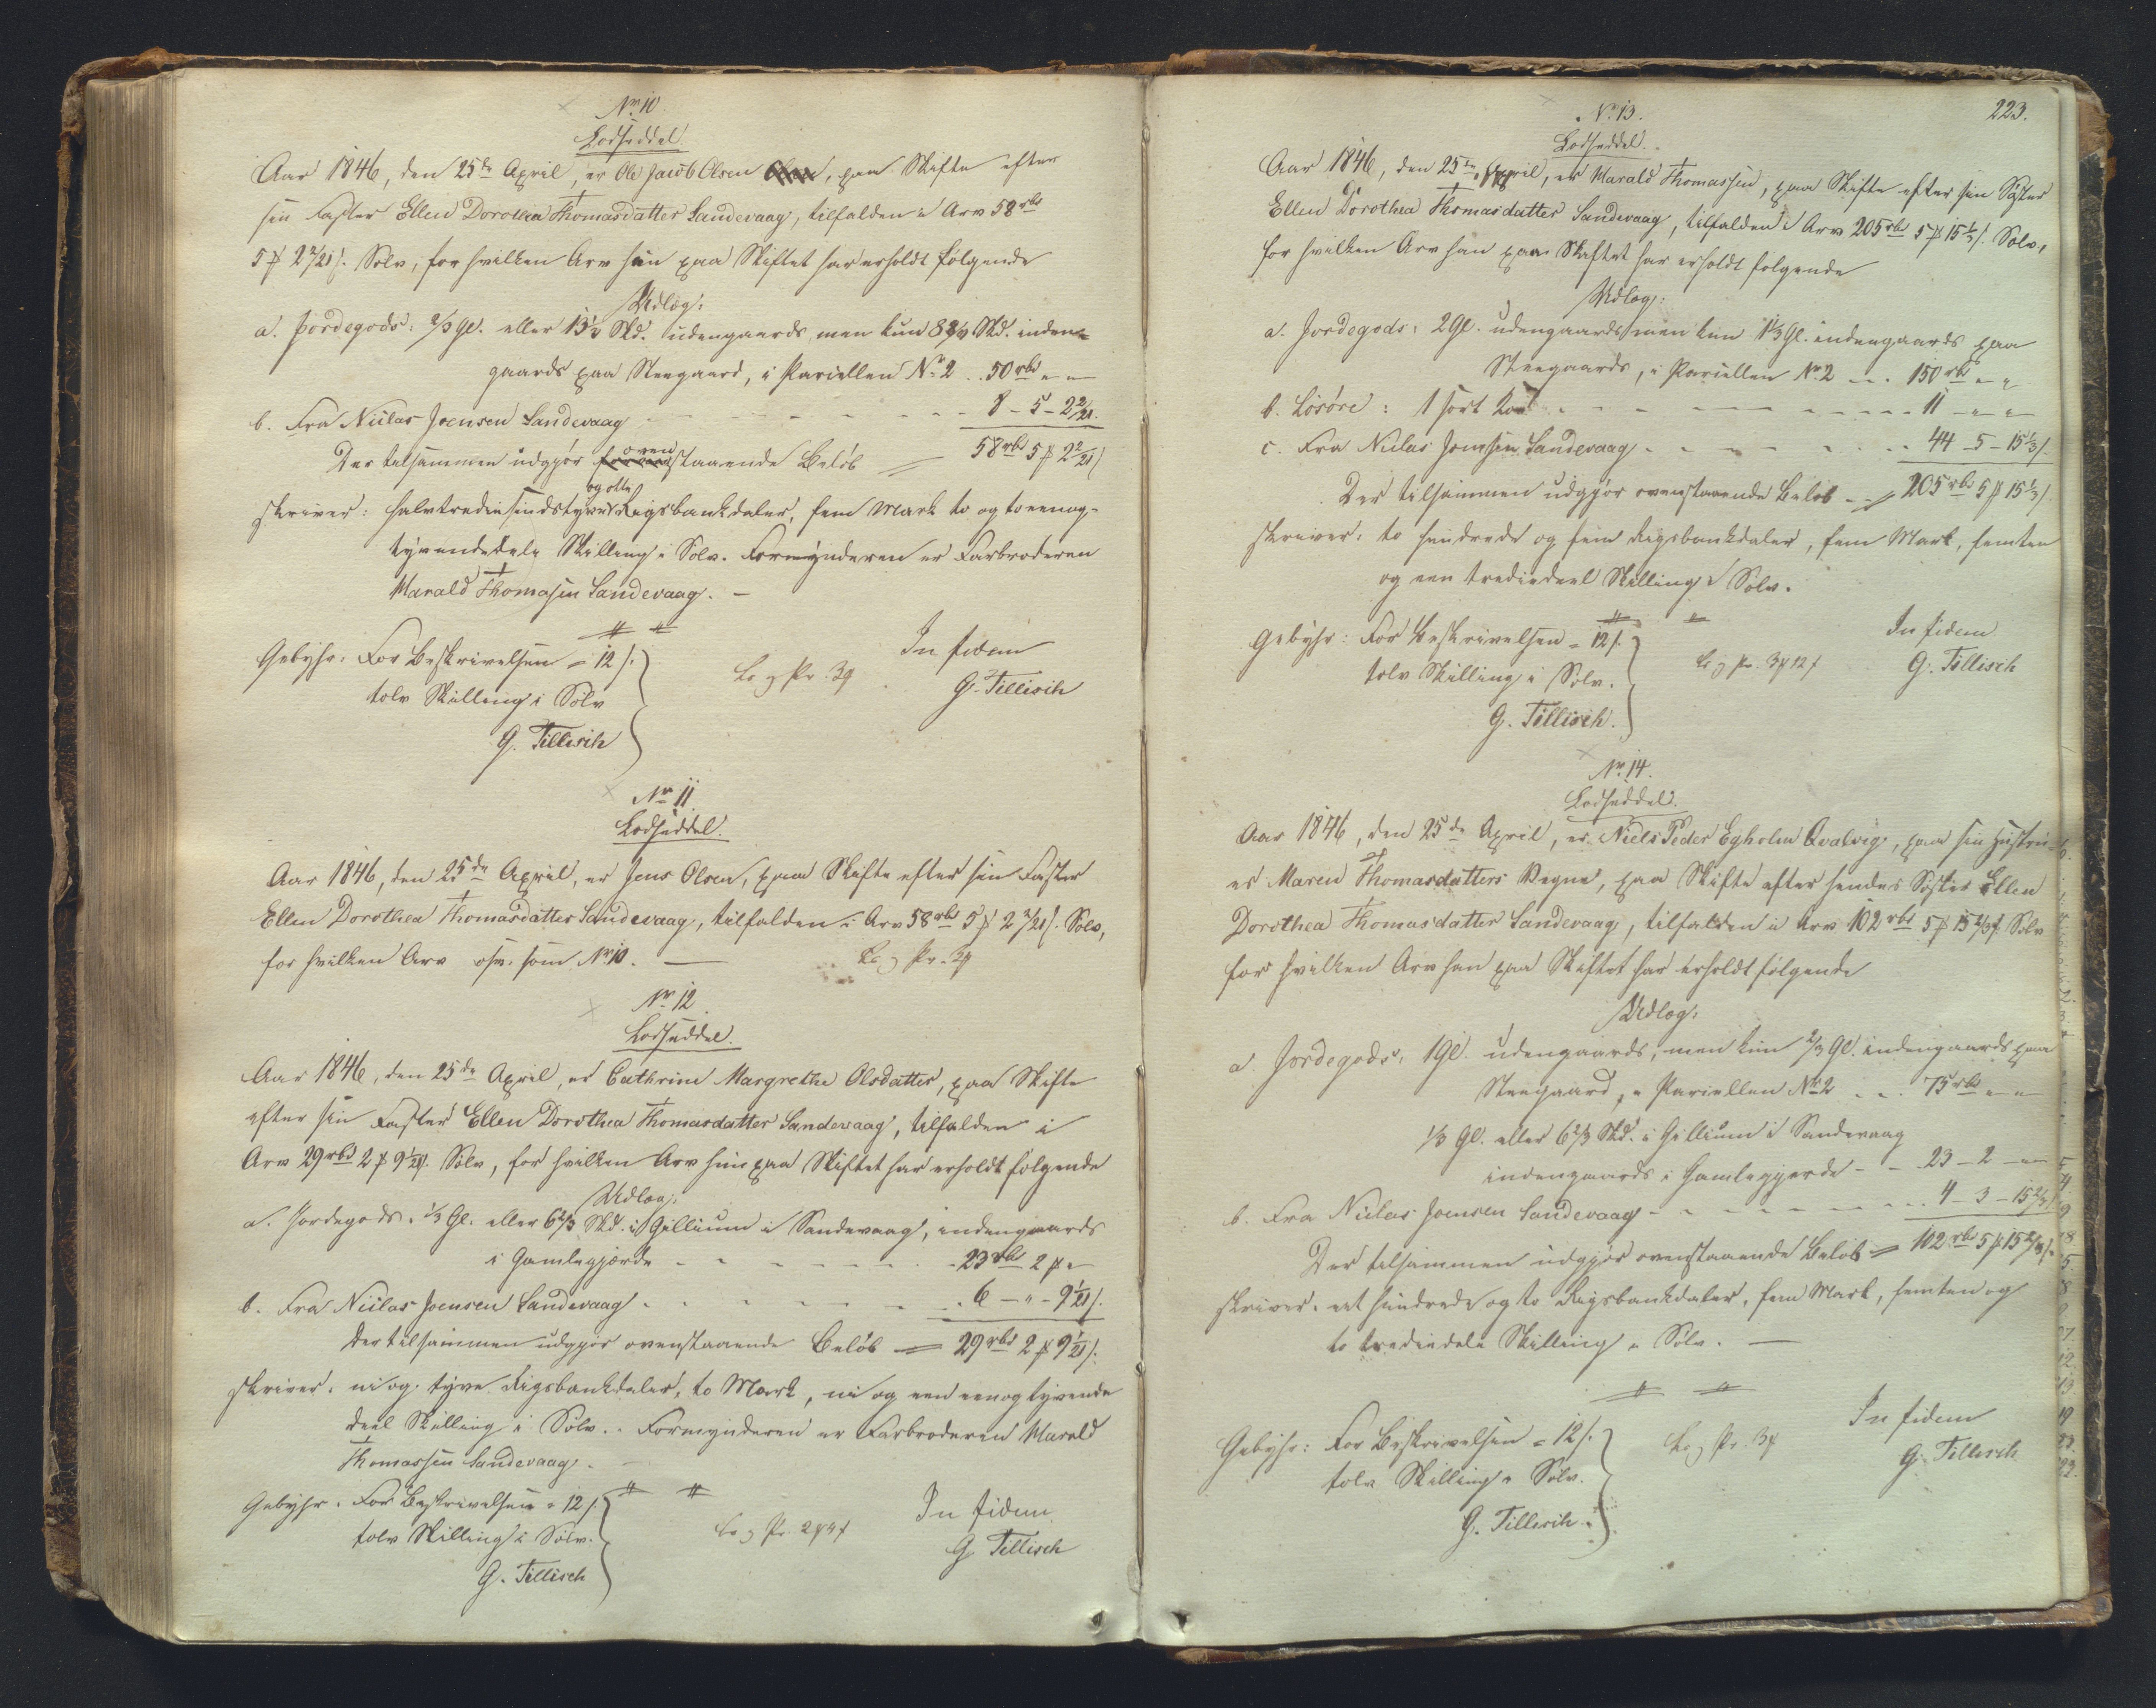 Nr. 10.
Lodseddel
Aar 1846, den 25de April, er Ole Jacob Olsen, paa Skifte efter
sin Faster Ellen Dorothea Thomasdatter Sandevaag, tilfalden i Arv 58 rbd
5 ꝟ 2 2/21 s. Sølv, for hvilken Arv han paa Skiftet har erholdt følgende
Udlæg:
a. Jordegods: 2/3 Gl. eller 13 1/3 Skd. udengaards, men kun 8 8/9 Skd. inden-
gaards paa Steegaard, i Parcellen No. 2 .. 50 rbd " "
b. Fra Niclas Joensen Sandevaag - - - 8 - 5 - 2 2/21.
Der tilsammen udgjør ovenstaaende Beløb = 58 rbd 5 ꝟ 2 2/21 s
skriver: halvtrediesindstyve og otte Rigsbankdaler, fem Mark to og to eenog-
tyvendedele Skilling i Sølv. Formynderen er Farbroderen
Marald Thomasen Sandevaag. -
Gebyhr: For Beskrivelsen = 12 s. In fidem
tolv Skilling i Sølv G. Tillisch
G. Tillisch
Nr. 11
Lodseddel.
Aar 1846, den 25de April, er Jens Olsen, paa Skifte efter sin Faster
Ellen Dorothea Thomasdatter Sandevaag, tilfalden i Arv 58 rbd 5 ꝟ 2 2/21 s. Sølv,
for hvilken Arv osv. som Nr. 10. -
Nr. 12
Lodseddel.
Aar 1846, den 25de April, er Cathrine Margrethe Olsdatter, paa Skifte
efter sin Faster Ellen Dorothea Thomasdatter Sandevaag, tilfalden i
Arv 29 rbd 2 ꝟ 9 1/21 s. Sølv, for hvilken Arv hun paa Skiftet har erholdt følgende
Udlæg:
a. Jordegods: 1/3 Gl. eller 6 2/3 Skd. i Gillium i Sandevaag, indengaards
i Gamlegjærde - - - 23 rbd 2 ꝟ "
b. Fra Niclas Joensen Sandevaag - - - 6 - " - 9 1/21 s.
Der tilsammen udgjør ovenstaaende Beløb = 29 rbd 2 ꝟ 9 1/21 s.
skriver: ni og tyve Rigsbankdaler, to Mark, ni og een eenogtyvende
deel Skilling i Sølv. - Formynderen er Farbroderen Marald
Thomassen Sandevaag. -
Gebyhr: For Beskrivelsen = 12 s. In fidem
tolv Skilling i Sølv. G. Tillisch
G. Tillisch
223.
Nr. 13.
Lodseddel.
Aar 1846, den 25de April, er Marald Thomassen, paa Skifte efter sin Søster
Ellen Dorothea Thomasdatter Sandevaag, tilfalden i Arv 205 rbd 5 ꝟ 15 1/3 s. Sølv,
for hvilken Arv han paa Skiftet har erholdt følgende
Udlæg:
a. Jordegods: 2 Gl. udengaards men kun 1 1/3 Gl. indengaards paa
Steegaards, i Parcellen No. 2 - - . 150 rbd " "
b. Løsøre: 1 sort Koe - - - 11 - " "
c. Fra Niclas Joensen Sandevaag - - - 44 - 5 - 15 1/3 s.
Der tilsammen udgjør ovenstaaende Beløb = 205 rbd 5 ꝟ 15 1/3 s.
skriver: to hundrede og fem Rigsbankdaler, fem Mark, femten
og een trediedeel Skilling i Sølv.
Gebyhr: For Beskrivelsen = 12 s. In fidem
tolv Skilling i Sølv. G. Tillisch
G. Tillisch.
Nr. 14.
Lodseddel.
Aar 1846, den 25de April, er Niels Peder Egholm Qvalvig, paa sin Hustru-
es Maren Thomasdatters Vegne, paa Skifte efter hendes Søster Ellen
Dorothea Thomasdatter Sandevaag, tilfalden i Arv 102 rbd 5 ꝟ 15 2/3 s. Sølv
for hvilken Arv han paa Skiftet har erholdt følgende
Udlæg:
a. Jordegods: 1 Gl. udengaards, men kun 2/3 Gl. indengaards paa
Steegaard, i Parcellen No. 2 . . . 75 rbd " "
1/3 Gl. eller 6 2/3 Skd. i Gillium i Sandevaag
indengaards i Gamlegjærde - - 23 - 2 - "
b. Fra Niclas Joensen Sandevaag - - - 4 - 3 - 15 2/3 s
Der tilsammen udgjør ovenstaaende Beløb = 102 rbd 5 ꝟ 15 2/3 s.
skriver: eet hundrede og to Rigsbankdaler, fem Mark, femten og
to trediedele Skilling i Sølv. -
Gebyhr: For Beskrivelsen = 12 s. In fidem
tolv Skilling i Sølv. G. Tillisch
G. Tillisch.